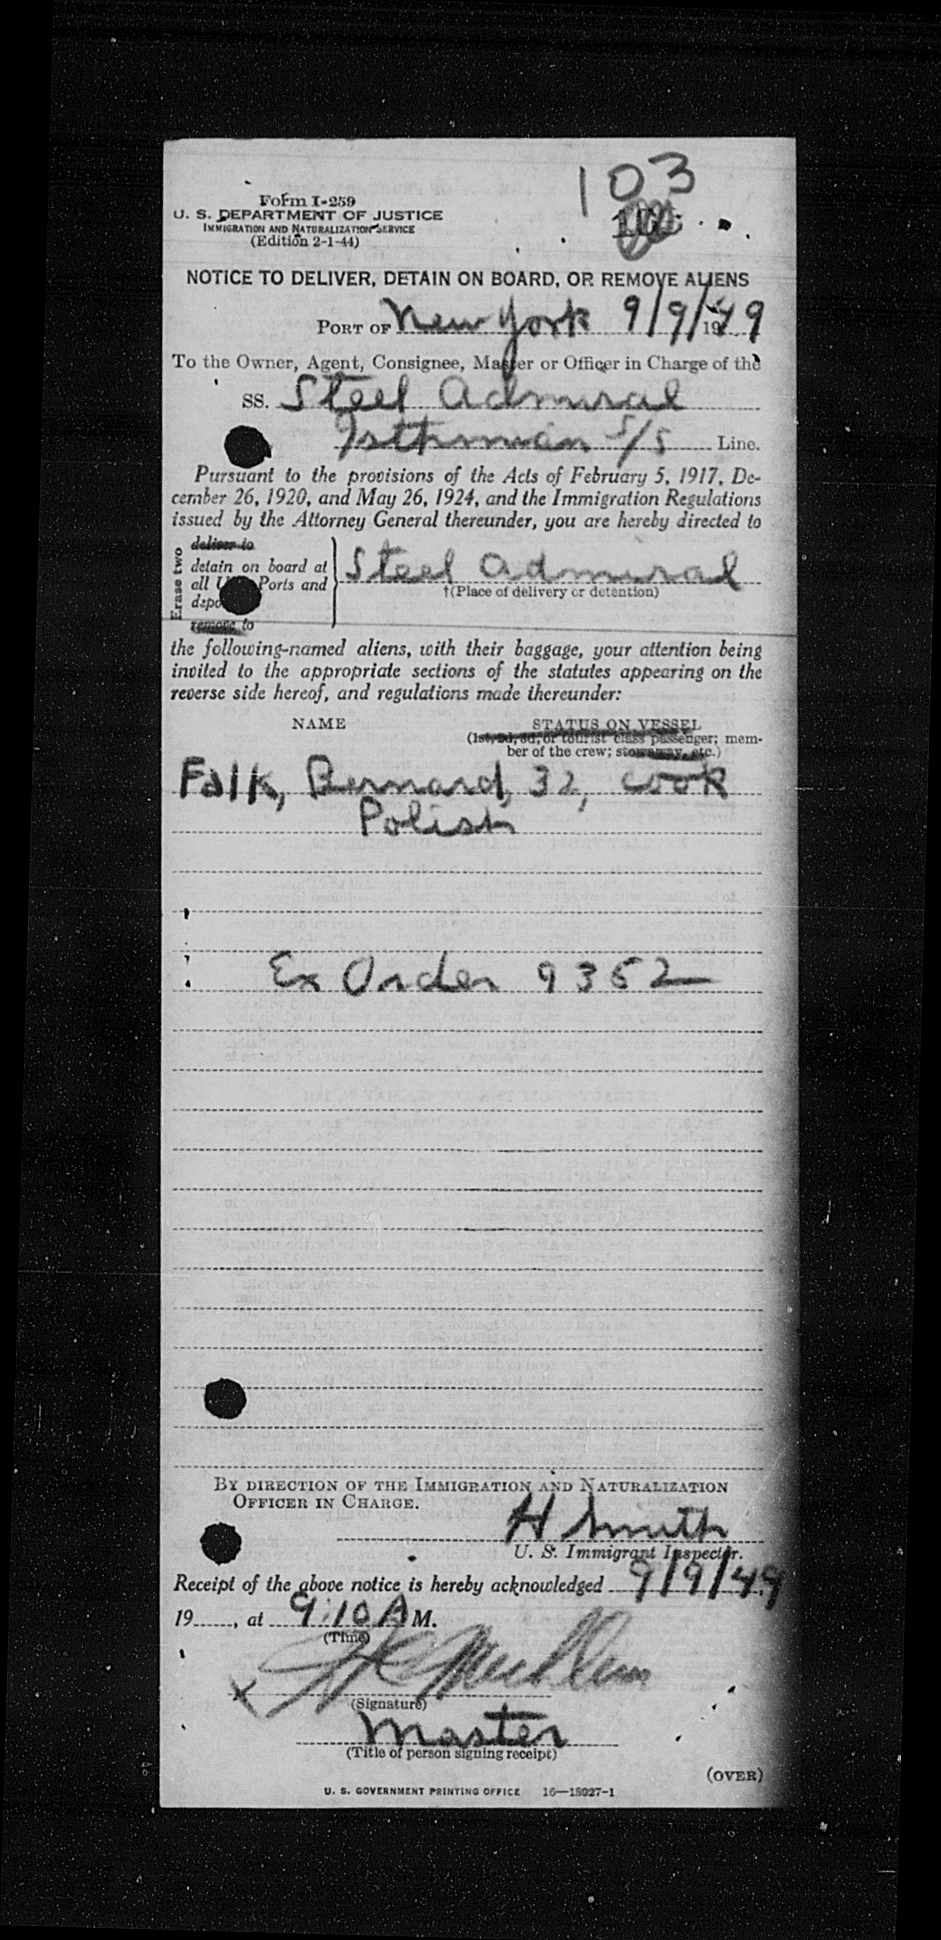 103
Form I-259
U. S. DEPARTMENT OF JUSTICE
IMMIGRATION AND NATURALIZATION SERVICE
(Edition 2-1-44)
NOTICE TO DELIVER, DETAIN ON BOARD, OR REMOVE ALIENS
PORT OF New York 9/9/1949
To the Owner, Agent, Consignee, Master or Officer in Charge of the
SS. Steel Admiral
Isthmian S/S Line.
Pursuant to the provisions of the Acts of February 5, 1917, De-
cember 26, 1920, and May 26, 1924, and the Immigration Regulations
issued by the Attorney General thereunder, you are hereby directed to
Erase two
deliver to
detain on board at
all Ports and
remove to
Steel Admiral
†(Place of delivery or detention)
the following-named aliens, with their baggage, your attention being
invited to the appropriate sections of the statutes appearing on the
reverse side hereof, and regulations made thereunder:
NAME STATUS ON VESSEL
(1st, 2d, 3d, or tourist class passenger; mem-
ber of the crew; stowaway, etc.)
Falk, Bernard, 32, cook
Polish
Ex Order 9352
BY DIRECTION OF THE IMMIGRATION AND NATURALIZATION
OFFICER IN CHARGE.
H Smith
U. S. Immigrant Inspector.
Receipt of the above notice is hereby acknowledged 9/9/49
19......, at 9:10 A M.
(Time)
X
(Signature)
Master
(Title of person signing receipt)
(OVER)
U. S. GOVERNMENT PRINTING OFFICE 16—18027-1